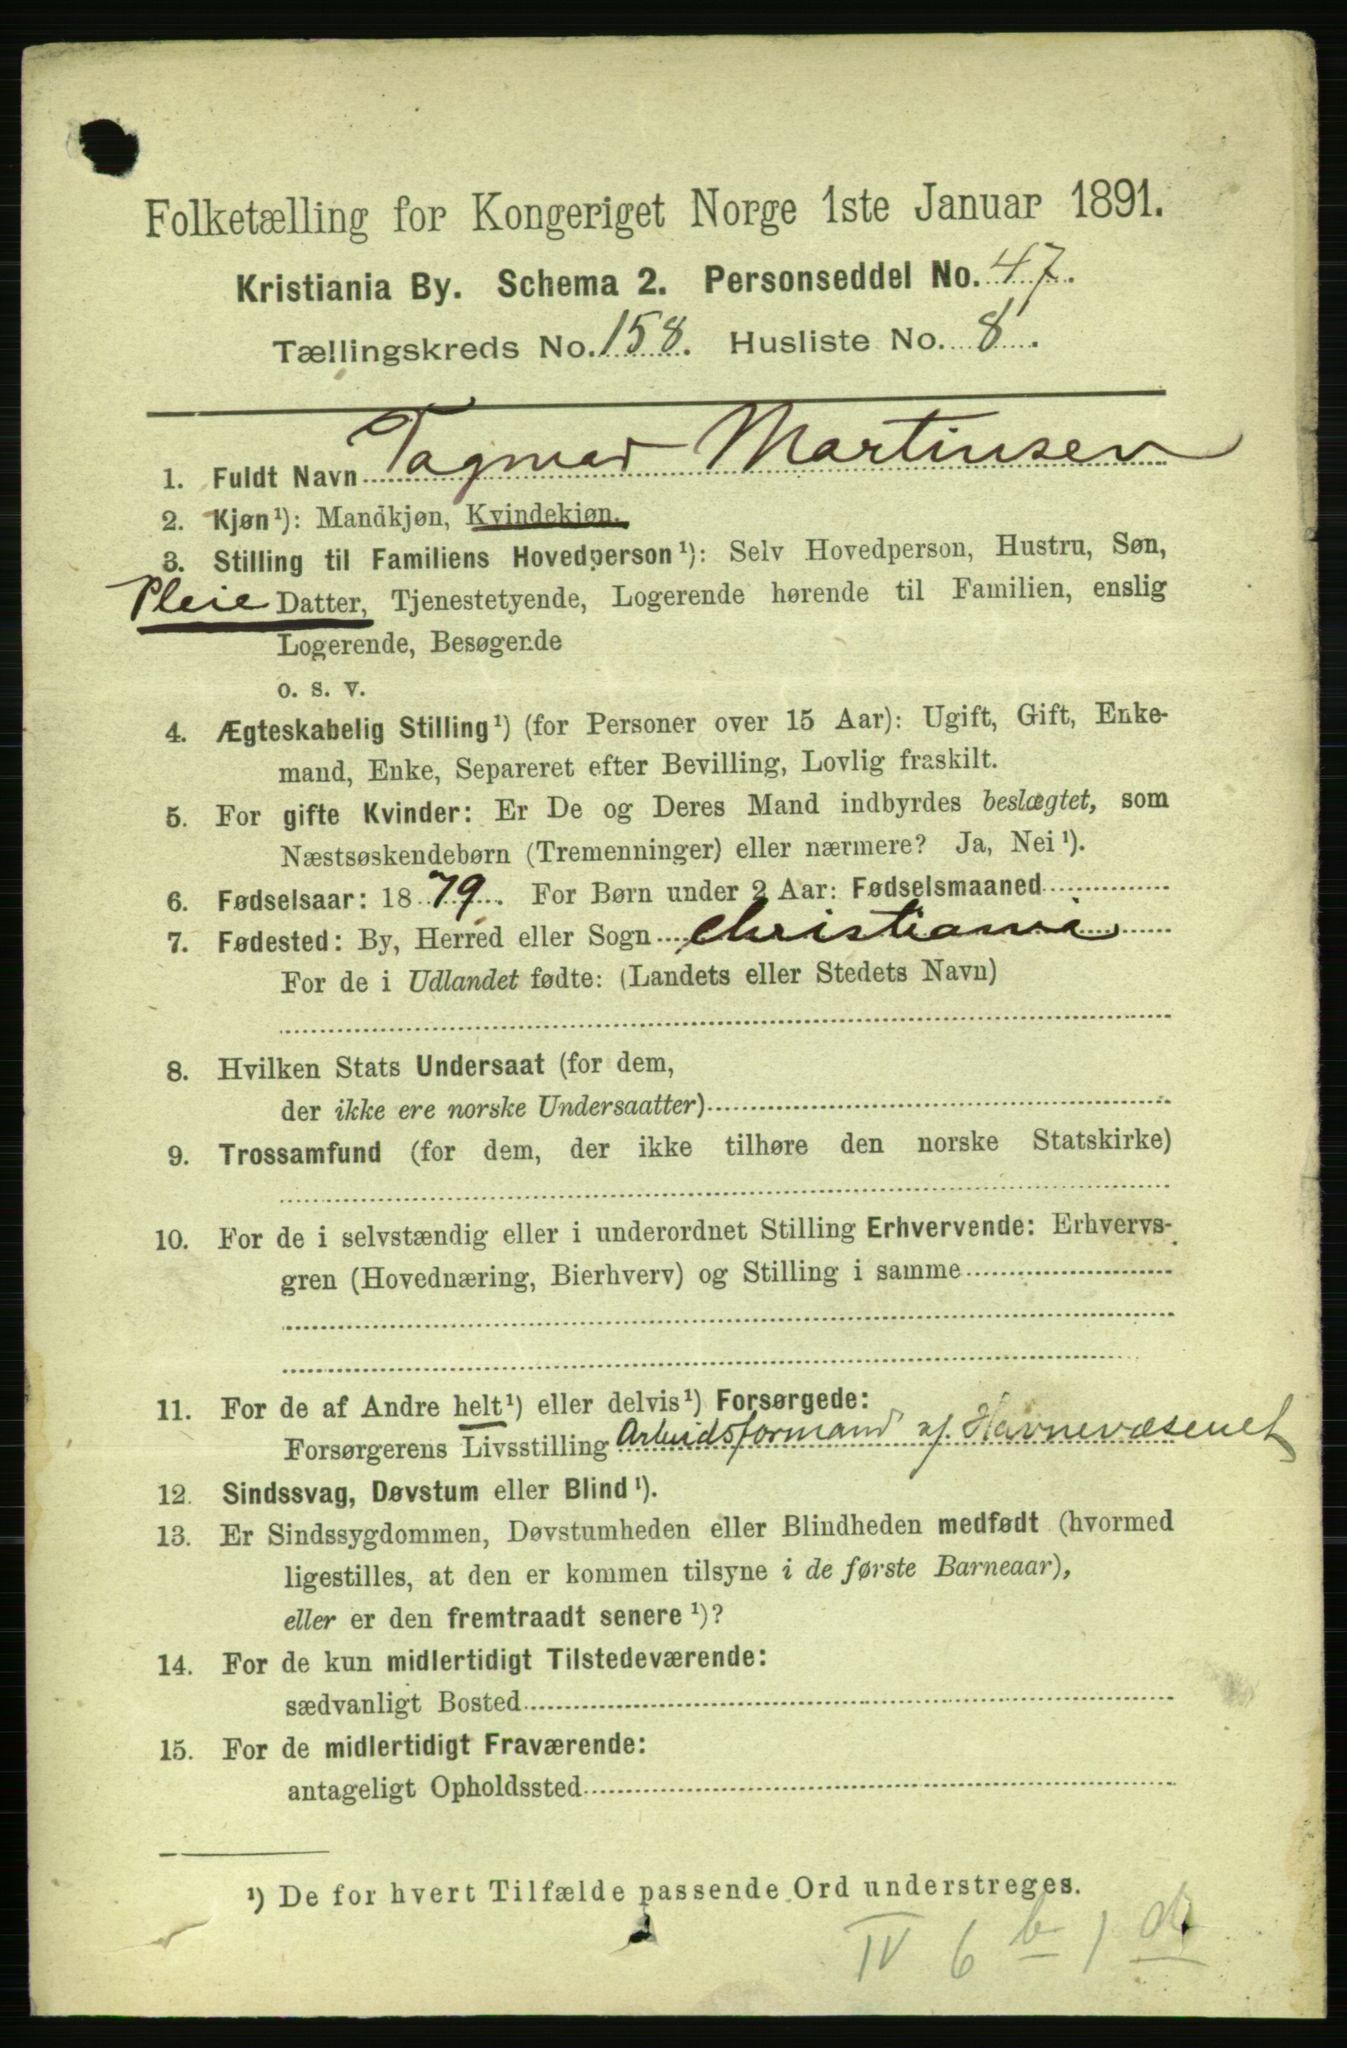 Folketælling for Kongeriget Norge 1ste Januar 1891.
Kristiania By. Schema 2. Personseddel No. 47.
Tællingskreds No. 158. Husliste No. 8.
1. Fuldt Navn Tagmar Martinsen
2. Kjøn¹): Mandkjøn, Kvindekjøn.
3. Stilling til Familiens Hovedperson¹): Selv Hovedperson, Hustru, Søn,
Pleie Datter, Tjenestetyende, Logerende hørende til Familien, enslig
Logerende, Besøgende
o. s. v.
4. Ægteskabelig Stilling¹) (for Personer over 15 Aar): Ugift, Gift, Enke-
mand, Enke, Separeret efter Bevilling, Lovlig fraskilt.
5. For gifte Kvinder: Er De og Deres Mand indbyrdes beslægtet, som
Næstsøskendebørn (Tremenninger) eller nærmere? Ja, Nei¹).
6. Fødselsaar: 1879. For Børn under 2 Aar: Fødselsmaaned
7. Fødested: By, Herred eller Sogn christiania
For de i Udlandet fødte: (Landets eller Stedets Navn)
8. Hvilken Stats Undersaat (for dem,
der ikke ere norske Undersaatter)
9. Trossamfund (for dem, der ikke tilhøre den norske Statskirke)
10. For de i selvstændig eller i underordnet Stilling Erhvervende: Erhvervs-
gren (Hovednæring, Bierhverv) og Stilling i samme
11. For de af Andre helt¹) eller delvis¹) Forsørgede:
Forsørgerens Livsstilling Arbeidsformand v/. Havnevæsenet
12. Sindssvag, Døvstum eller Blind¹).
13. Er Sindssygdommen, Døvstumheden eller Blindheden medfødt (hvormed
ligestilles, at den er kommen tilsyne i de første Barneaar),
eller er den fremtraadt senere¹)?
14. For de kun midlertidigt Tilstedeværende:
sædvanligt Bosted
15. For de midlertidigt Fraværende:
antageligt Opholdssted
¹) De for hvert Tilfælde passende Ord understreges.
IV 6 b 1 d